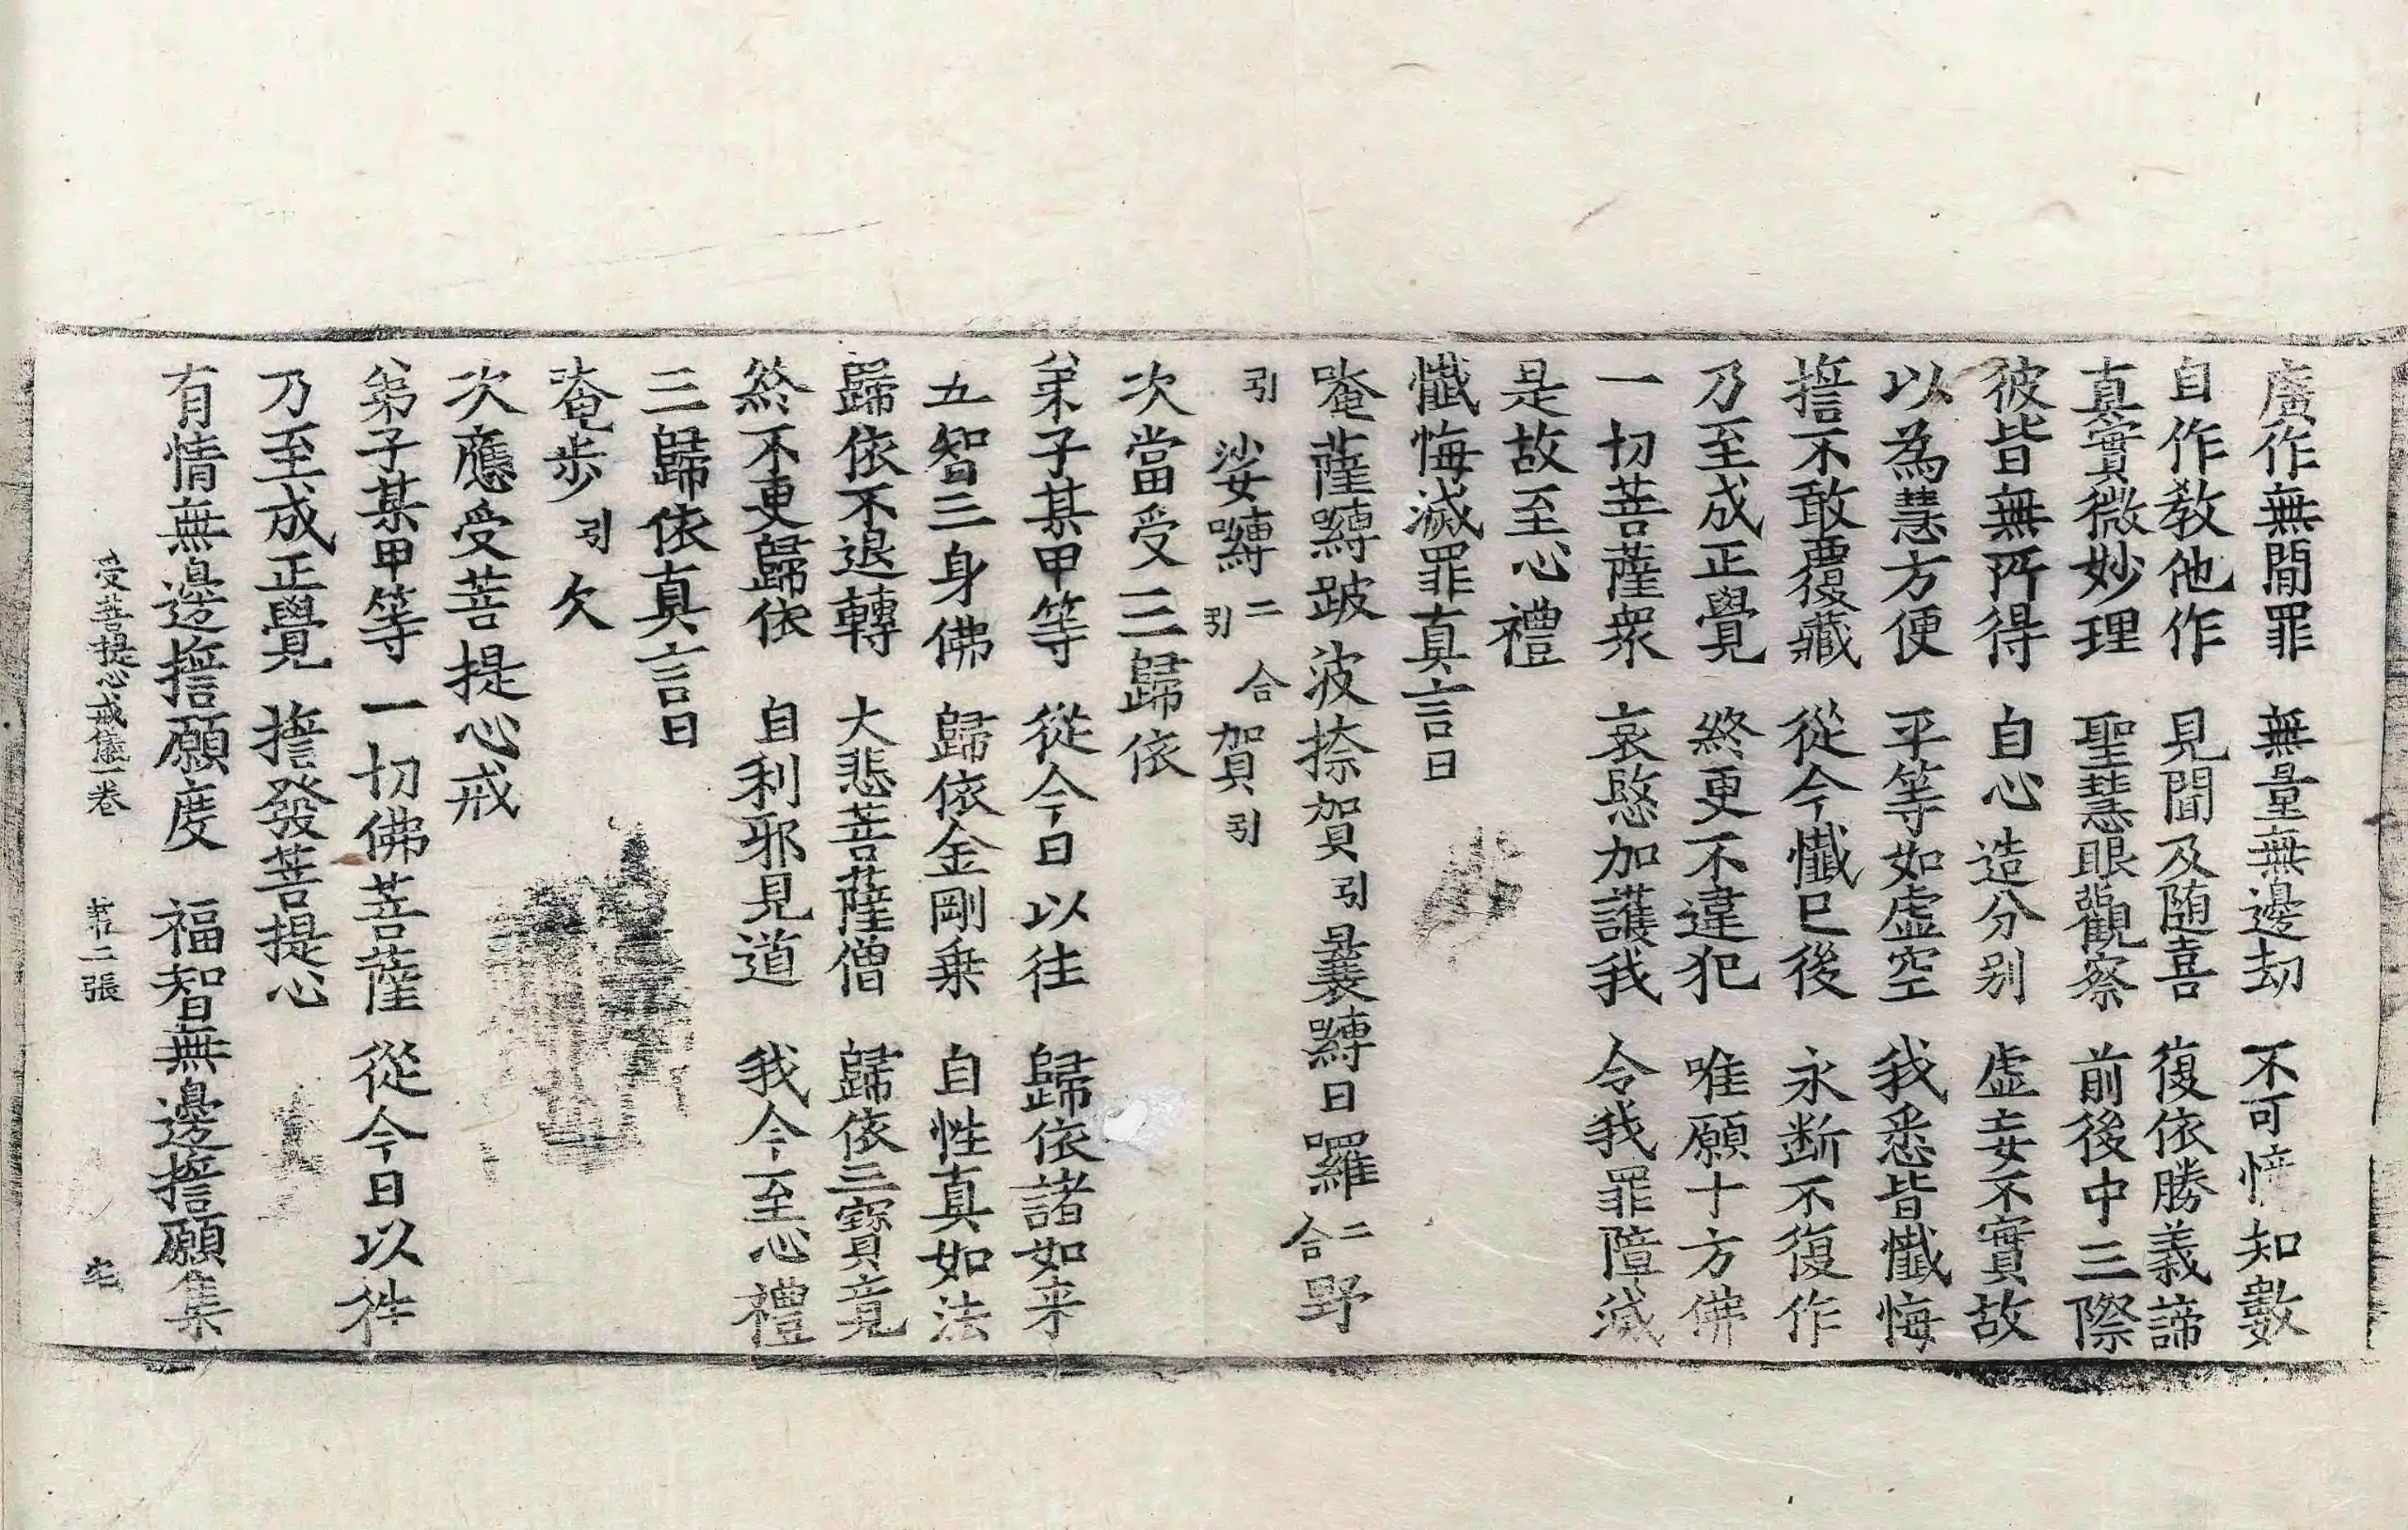 廣作無閒罪　無量無邊劫　不可悋知數
自作教他作　見聞及随喜　復依勝義諦
真實微妙理　聖慧眼觀察　前後中三際
彼皆無所得　自心造分别　虛妄不實故
以為慧方便　平等如虛空　我悉皆懺悔
誓不敢覆藏　從今懺已後　永断不復作
乃至成正覺　終更不違犯　唯願十方佛
一切菩薩衆　哀愍加護我　令我罪障滅
是故至心禮
懺悔滅罪真言曰
唵薩嚩跛波捺賀引曩嚩日羅二合野
引娑嚩二引合賀引
次當受三歸依
弟子某甲等　從今日以往　歸依諸如来
五智三身佛　歸依金剛乗　自性真如法
歸依不退轉　大悲菩薩僧　歸依三寳竟
終不更歸依　自利邪見道　我今至心禮
三歸依真言曰
唵步引欠
次應受菩提心戒
弟子某甲等　一切佛菩薩　從今日以往
乃至成正覺　誓發菩提心
有情無邊誓願度　福智無邊誓願集
受菩提心戒儀一卷　第二張　宅